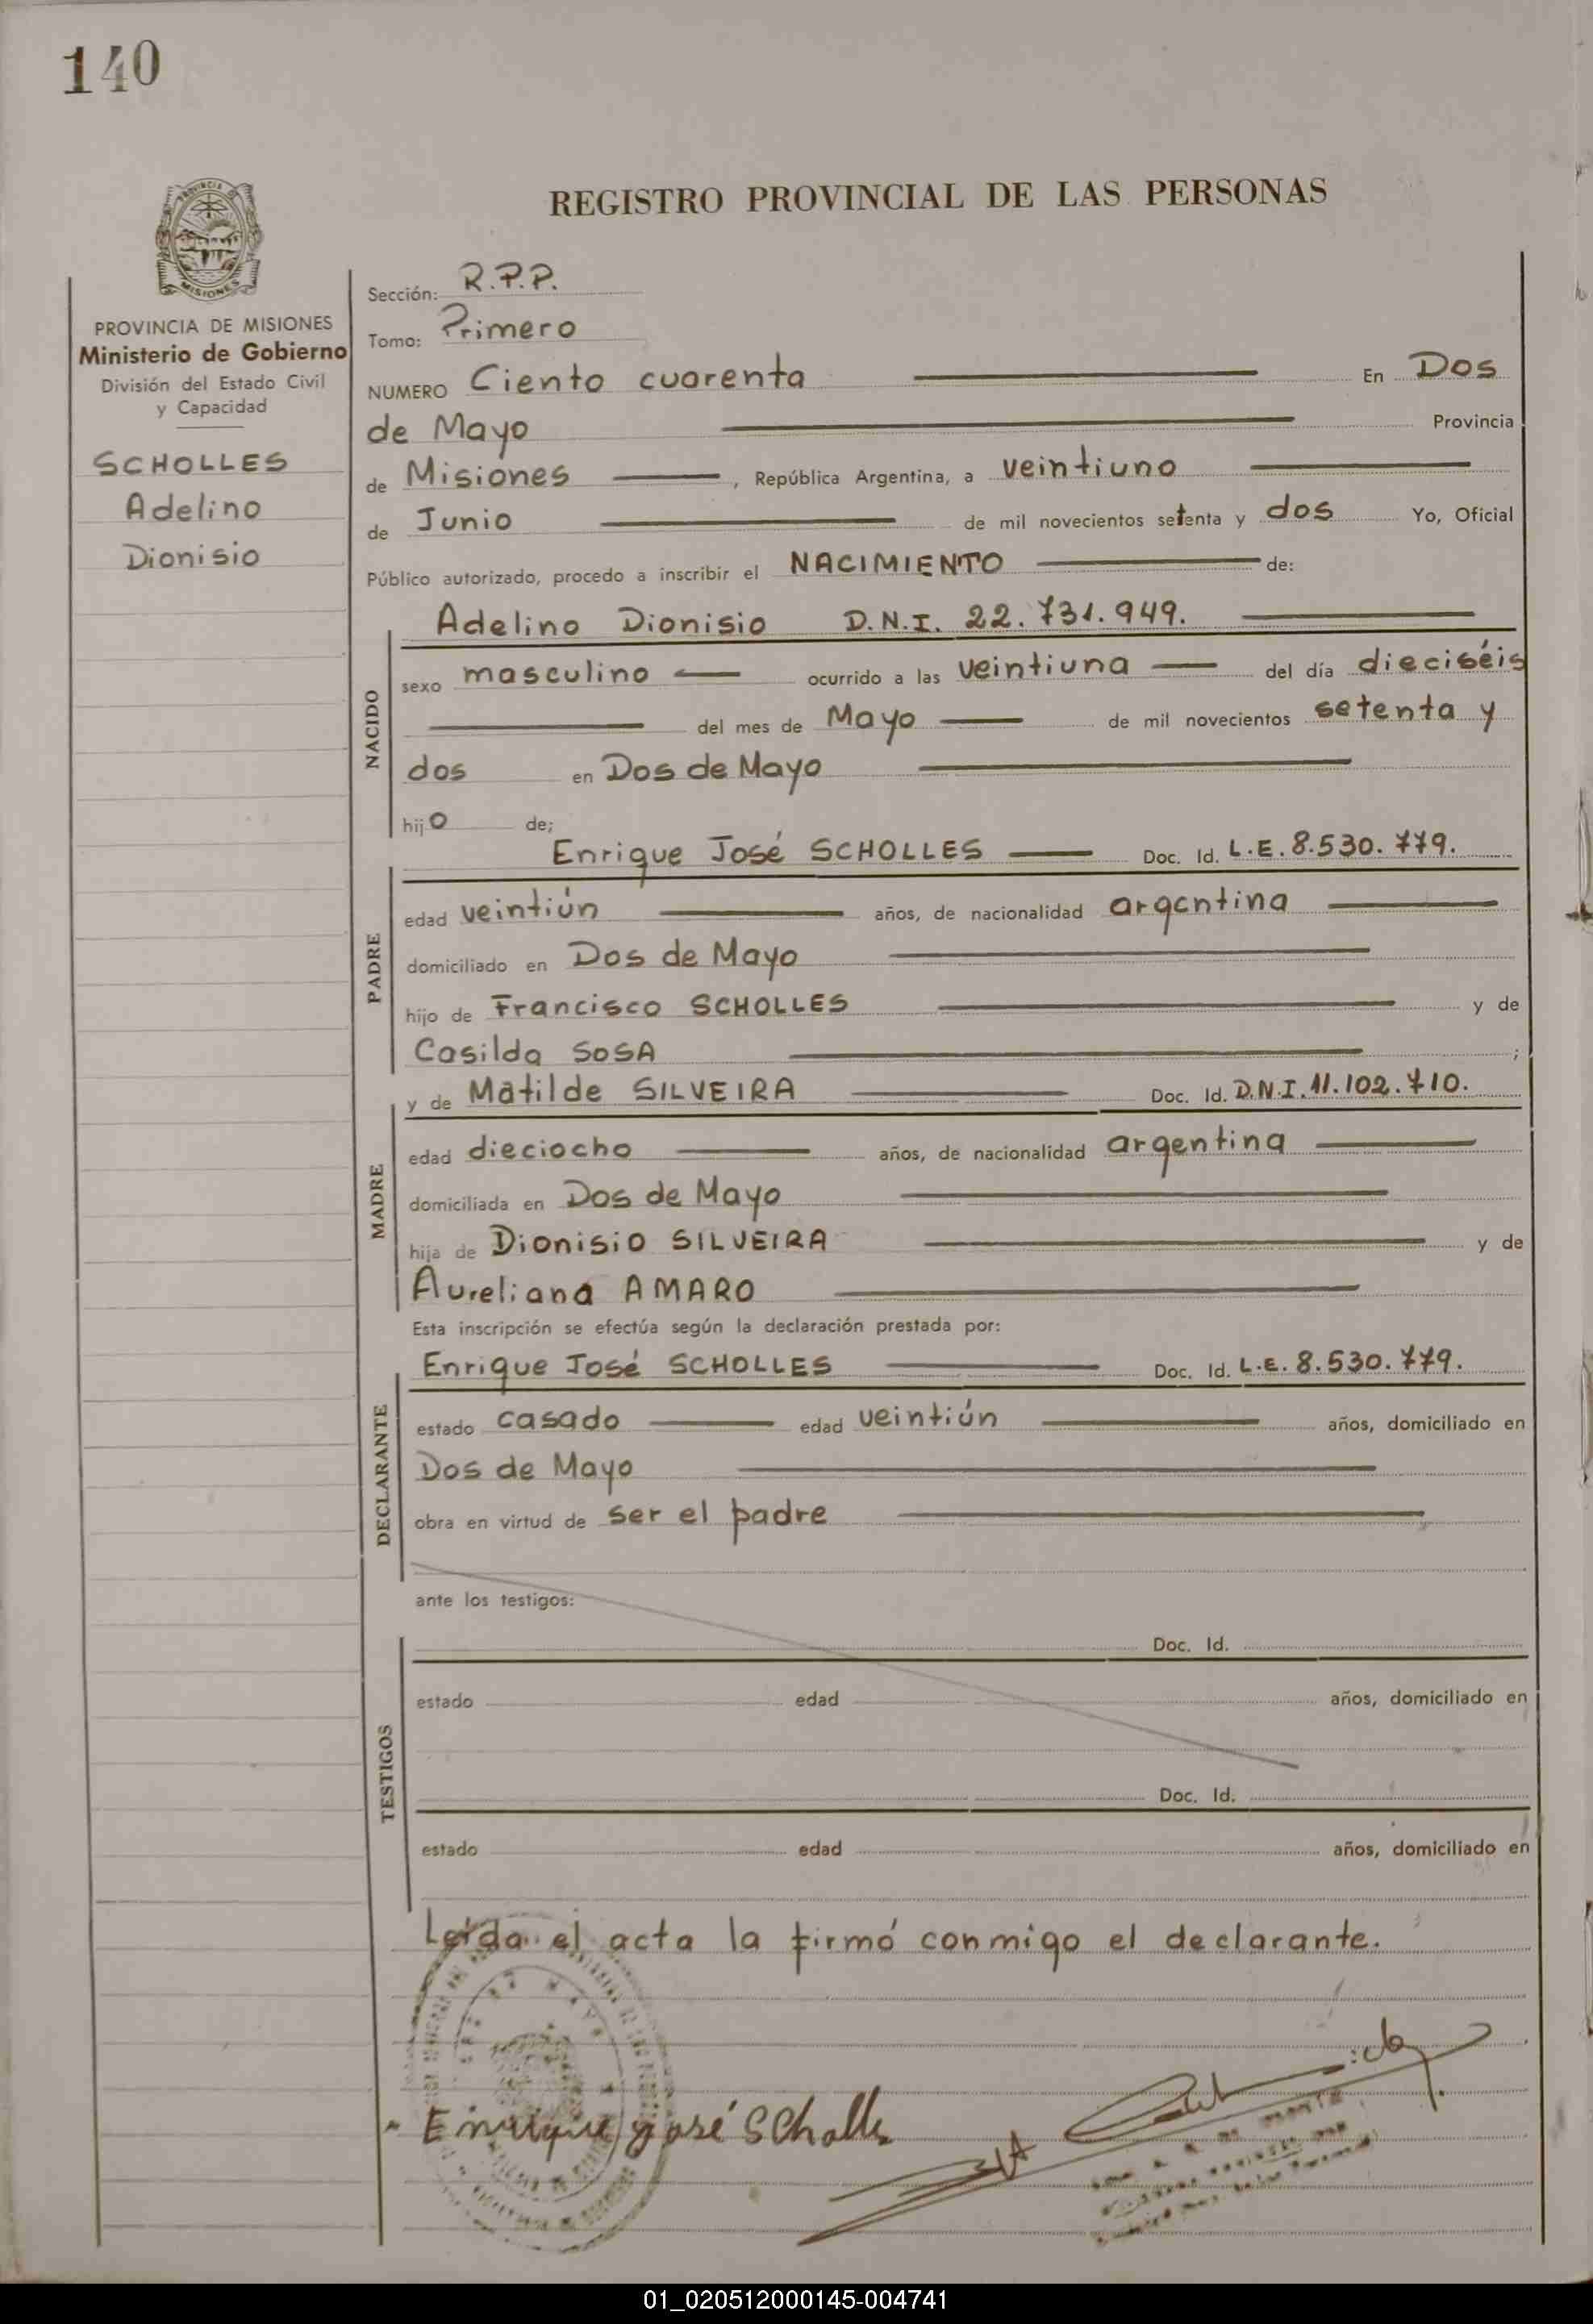 140
REGISTRO PROVINCIAL DE LAS PERSONAS
MISIONES
PROVINCIA DE MISIONES
Ministerio de Gobierno
División del Estado Civil
y Capacidad
SCHOLLES
Adelino
Dionisio
Sección: R.P.P.
Tomo: Primero
NUMERO Ciento cuarenta En Dos
de Mayo Provincia
de Misiones , República Argentina, a veintiuno
de Junio de mil novecientos setenta y dos Yo, Oficial
Público autorizado, procedo a inscribir el NACIMIENTO de:
NACIDO
Adelino Dionisio D.N.I. 22.731.949.
sexo masculino ocurrido a las veintiuna del día dieciséis
del mes de Mayo de mil novecientos setenta y
dos en Dos de Mayo
hijo de;
PADRE
Enrique José SCHOLLES Doc. Id. L.E. 8.530.779.
edad veintiún años, de nacionalidad argentina
domiciliado en Dos de Mayo
hijo de Francisco SCHOLLES y de
Casilda SOSA ;
MADRE
y de Matilde SILVEIRA Doc. Id. D.N.I. 11.102.710.
edad dieciocho años, de nacionalidad argentina
domiciliada en Dos de Mayo
hija de Dionisio SILVEIRA y de
Aureliana AMARO
Esta inscripción se efectúa según la declaración prestada por:
DECLARANTE
Enrique José SCHOLLES Doc. Id. L.E. 8.530.779.
estado casado edad veintiún años, domiciliado en
Dos de Mayo
obra en virtud de ser el padre
ante los testigos:
TESTIGOS
Doc. Id.
estado edad años, domiciliado en
Doc. Id.
estado edad años, domiciliado en
Leída el acta la firmó conmigo el declarante.
Enrique José Scholles
01_020512000145-004741